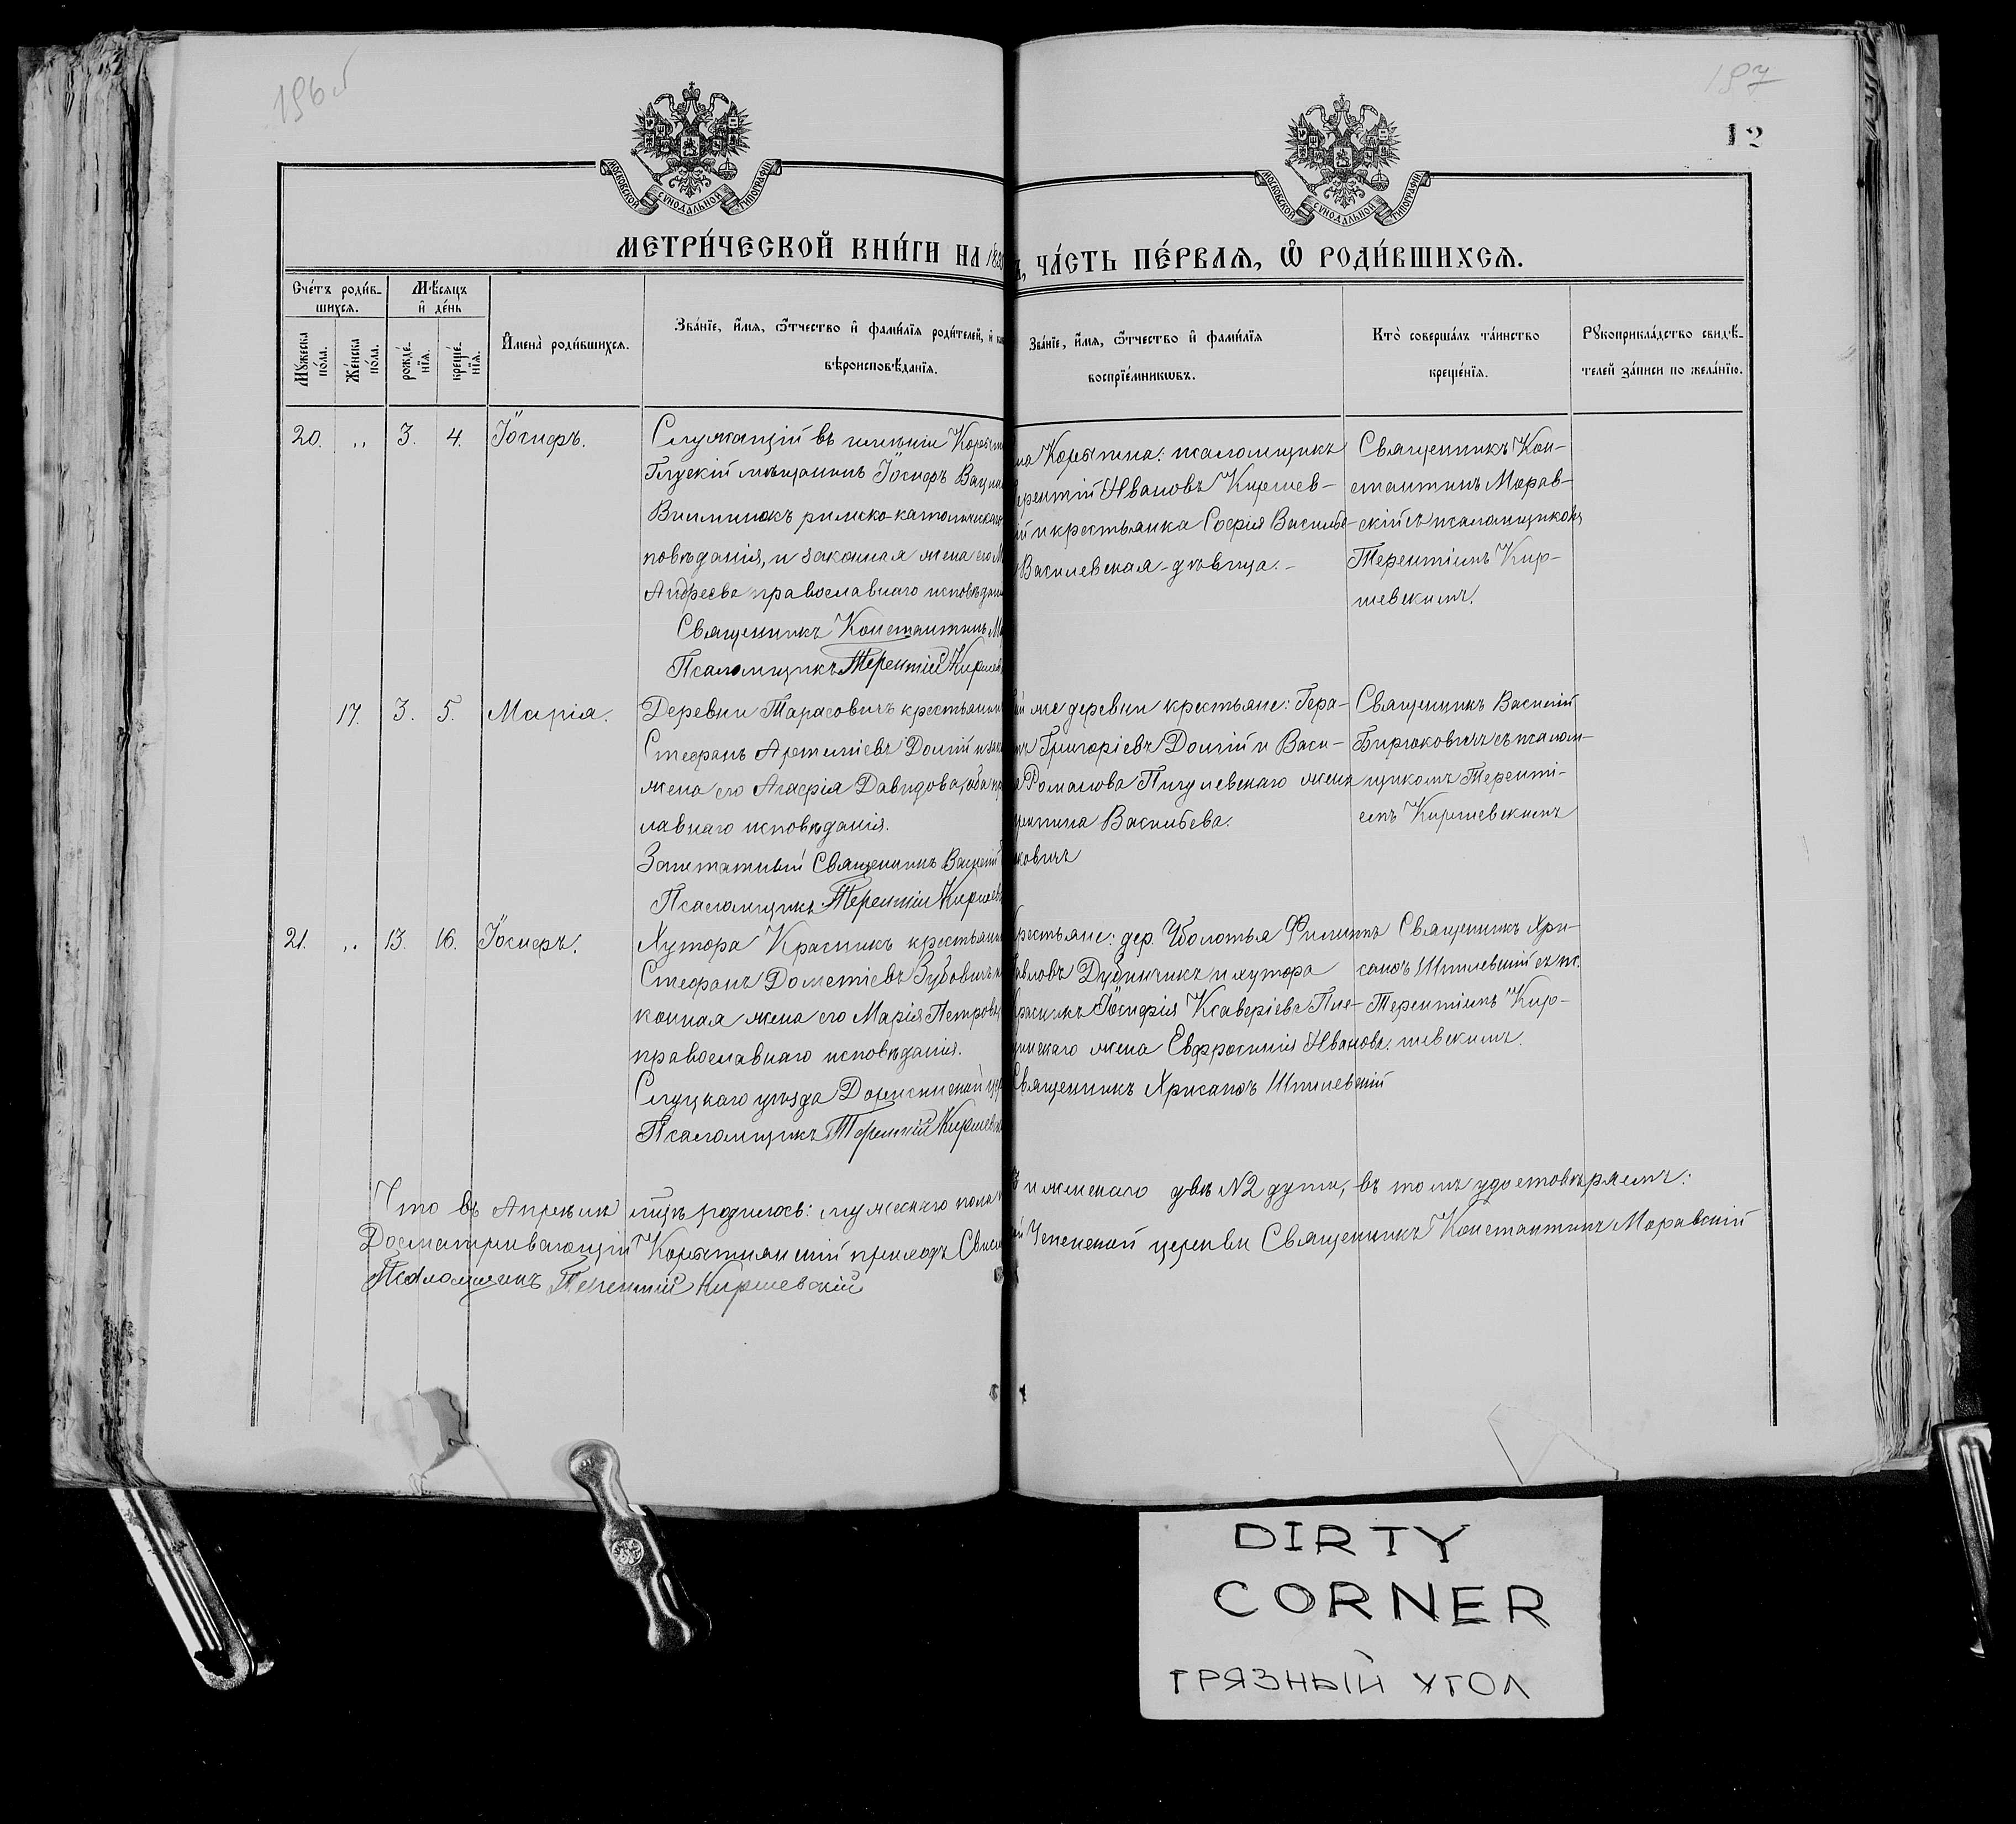 196об
187
12
МОСКОВСКОЙ СѴНОДАЛЬНОЙ ТИПОГРАФІИ
МОСКОВСКОЙ СѴНОДАЛЬНОЙ ТИПОГРАФІИ
МЕТРИ́ЧЕСКОЙ КНИ́ГИ НА
ЧА́СТЬ ПЕ́РВАЯ, Ѽ РОДИ́ВШИХСЯ.
Сче́тъ роди́в-
шихся.
Мѣ́сяцъ
и҆ де́нь
Мꙋ́жеска
по́ла.
Же́нска
по́ла.
рожде́-
нїя.
креще́-
нїя.
И҆мена̀ роди́вшихся.
Зва́нїе, и҆́мя, ѻ҆́тчество и҆ фами́лїя роди́телей, и҆
вѣроисповѣ́данїя.
Зва́нїе, и҆́мя, ѻ҆́тчество и҆ фами́лїя
воспрїе́мникѡвъ.
Кто̀ соверша́лъ та́инство
креще́нїя.
Рꙋкоприкла́дство свидѣ́-
телей за́писи по жела́нїю.
20. „ 3. 4. Іосифъ.
Служащій въ имѣніи
Глускій мѣщанинъ Іосифъ
римско-католическаго
повѣданія, и законная жена его
Андреева православнаго исповѣдан
Священникъ Константинъ
Псаломщикъ Терентій
псаломщикъ
Ивановъ Киршев-
и крестьянка Софія Василье
Василевская-дѣвица.-
Священникъ Кон-
стантинъ Морав-
скій съ псаломщикомъ
Терентіемъ Кир-
шевскимъ.
17. 3. 5. Марія.
Деревни Тарасовичъ крестьянин
Стефанъ Долгій
жена его Агафія Давидова, оба
лавнаго исповѣданія.
Заштатный Священникъ Василій
Псаломщикъ Терентій
же деревни крестьяне: Гера-
Григоріевъ Долгій и Васи-
Романова Пигулевскаго жена
Васильева.
ковичъ
Священникъ Василій
Бирюковичъ съ псалом-
щикомъ Теренті-
емъ Киршевскимъ
21. „ 13. 16. Іосифъ.
Хутора Красникъ крестьянин
Стефанъ Дометіевъ Зубовичъ
конная жена его Марія Петрова,
православнаго исповѣданія.
Слуцкаго уѣзда
Псаломщикъ Терентій
крестьяне: дер. Уболотья Филиппъ
Дубинчикъ и хутора
Іосифія Ксаверіева
жена Евфросинія Иванова.
Священникъ Хрисанфъ Шпилевскій
Священникъ Хри-
санфъ Шпилевскій съ пс.
Терентіемъ Кир-
шевскимъ.
Что въ Апрѣлѣ мцѣ родилось: мужескаго пола
и женскаго двѣ №2 души, въ томъ удостовѣряемъ:
Досматривающій приходъ
церкви Священникъ Константинъ Моравскій
Псаломщикъ Терентій Киршевскій
DIRTY
CORNER
ГРЯЗНЫЙ УГОЛ